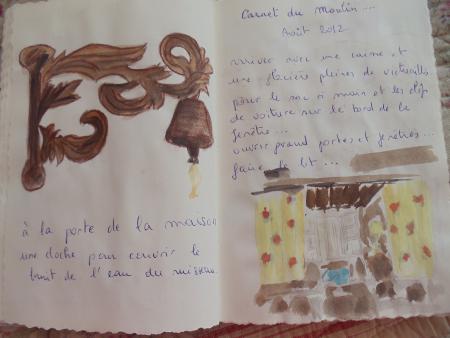 à la porte de la maison
une cloche pour couvrir le
bruit de l'eau du ruisseau.
Carnet du Moulin...
Août 2012
arriver avec une caisse et
une glacière pleines de victuailles
poser le sac à main et les clefs
de voiture sur le bord de la
fenêtre...
ouvrir grand portes et fenêtres...
faire le lit...